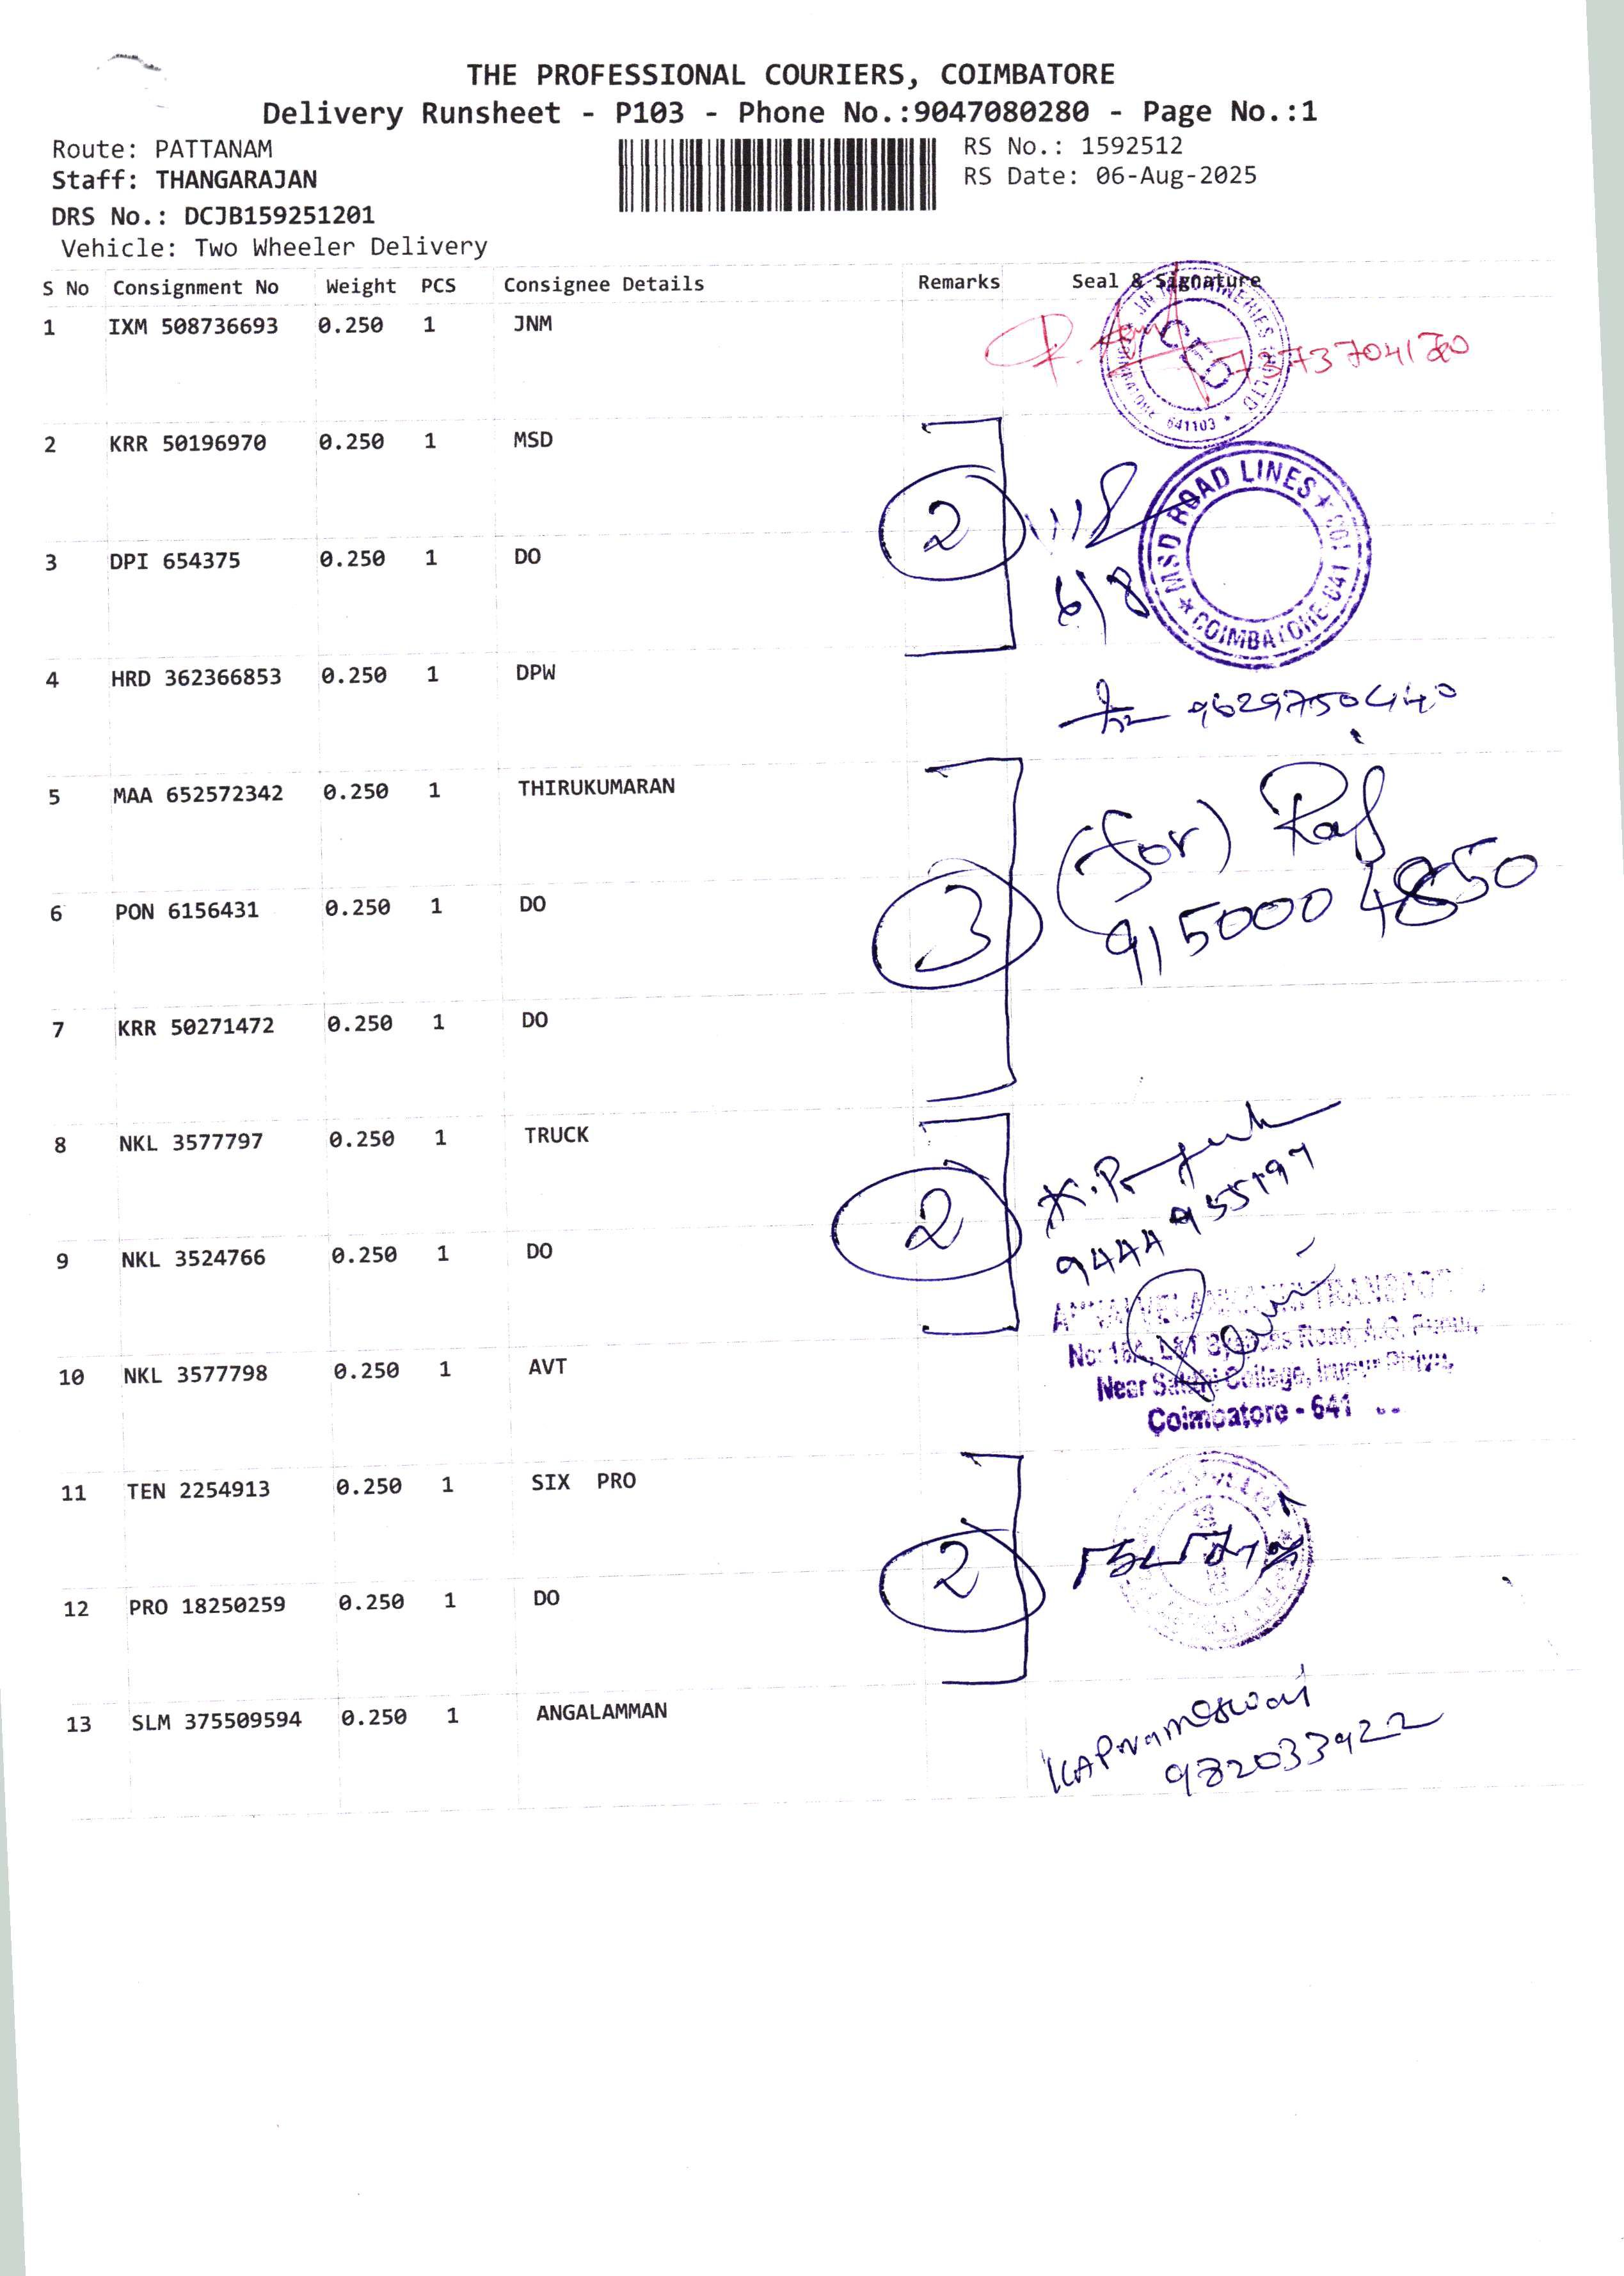 THE PROFESSIONAL COURIERS, COIMBATORE
Delivery Runsheet - P103 - Phone No.:9047080280 - Page No.:1
Route: PATTANAM
RS No.: 1592512
Staff: THANGARAJAN
RS Date: 06-Aug-2025
DRS No.: DCJB159251201
Vehicle: Two Wheeler Delivery
S No Consignment No Weight PCS Consignee Details Remarks Seal & Signature
1 IXM 508736693 0.250 1 JNM
CEO
641103
2 KRR 50196970 0.250 1 MSD
2
MSD ROAD LINES
COIMBATORE-641 103
6/8
3 DPI 654375 0.250 1 DO
4 HRD 362366853 0.250 1 DPW
9629750440
5 MAA 652572342 0.250 1 THIRUKUMARAN
(for) Raj
6 PON 6156431 0.250 1 DO
3
915000 4850
7 KRR 50271472 0.250 1 DO
8 NKL 3577797 0.250 1 TRUCK
2
9 NKL 3524766 0.250 1 DO
10 NKL 3577798 0.250 1 AVT
Coimbatore - 641
11 TEN 2254913 0.250 1 SIX PRO
2
12 PRO 18250259 0.250 1 DO
13 SLM 375509594 0.250 1 ANGALAMMAN
982033922